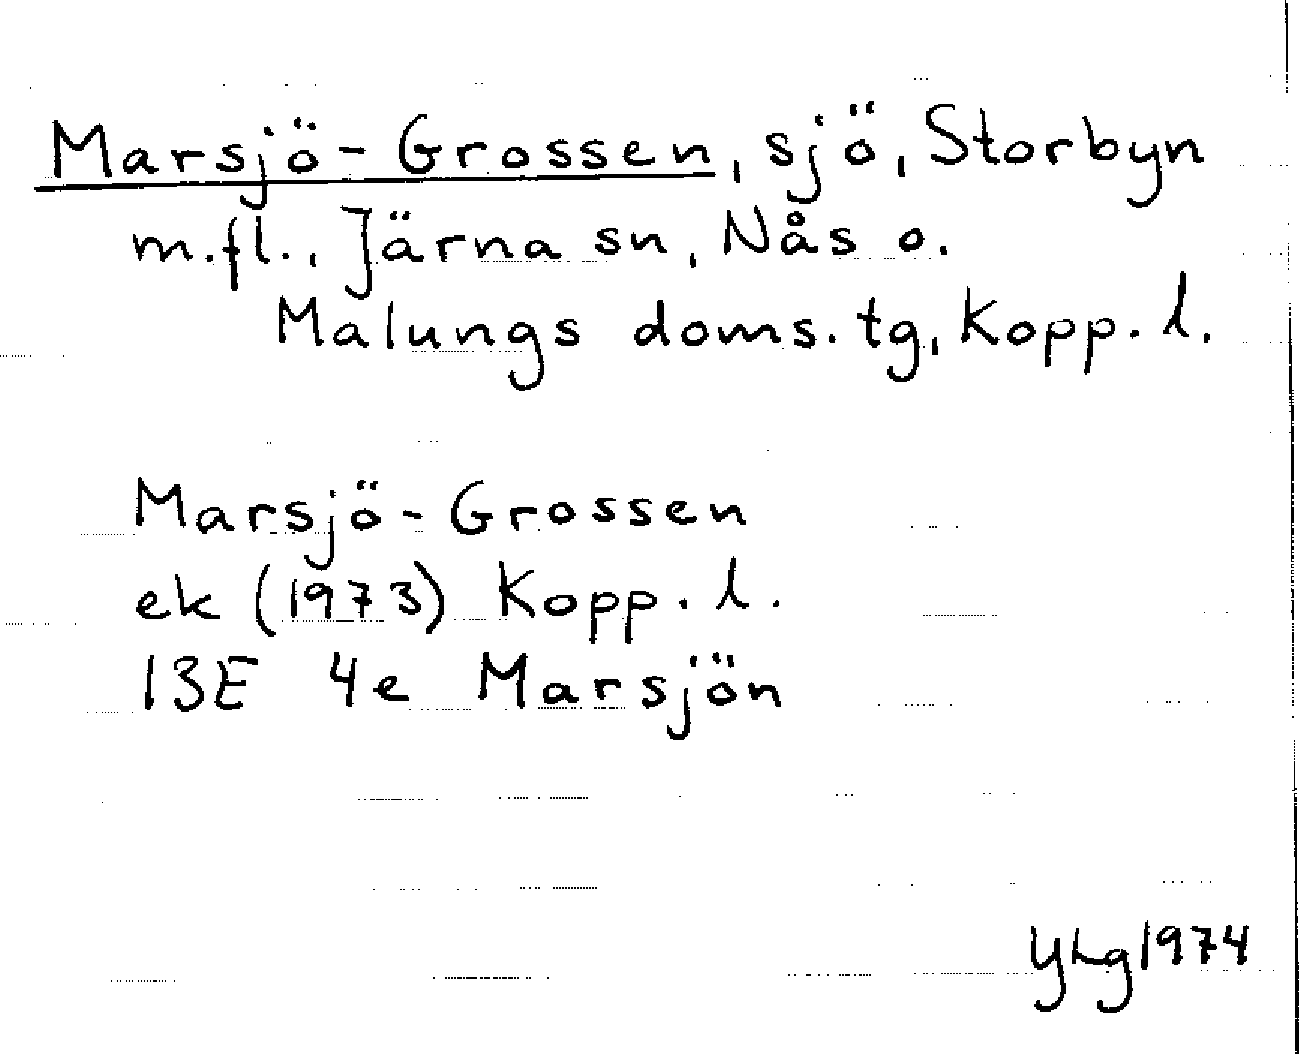 Marsjö-Grossen, sjö, Storbyn
m.fl., Järna sn, Nås o.
Malungs doms.tg, Kopp. l.
Marsjö-Grossen
ek (1973) Kopp. l.
13E 4e Marsjön
YLg 1974